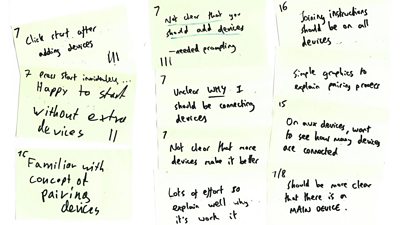 7
Click start after
adding devices
|||
7 press start immediately...
Happy to start
without extra
devices ||
15
Familiar with
concept of
pairing
devices
7
Not clear that you
should add devices
- needed prompting
|||
7
Unclear WHY I
should be connecting
devices
7
Not clear that more
devices make it better
Lots of effort so
explain well why
it's work it
16
Joining instructions
should be on all
devices..
Simple graphics to
explain pairing process
15
On aux devices, want
to see how many devices
are connected
7/8
Should be more clear
that there is a
MAIN DEVICE.